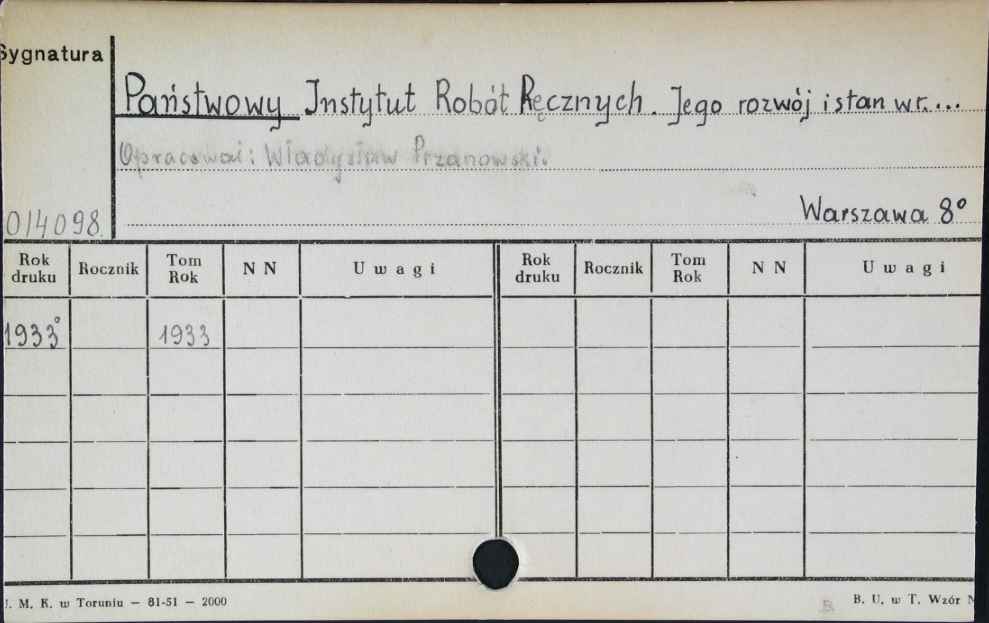 Sygnatura
Państwowy Instytut Robót Ręcznych. Jego rozwój i stan w r....
Opracował: Władysław Przanowski.
Warszawa 8°
014098
Rok druku Rocznik Tom Rok N N Uwagi Rok druku Rocznik Tom Rok N N Uwagi
1933° 1933
U. M. K. w Toruniu — 81-51 — 2000
B. U. w T. Wzór N
B.